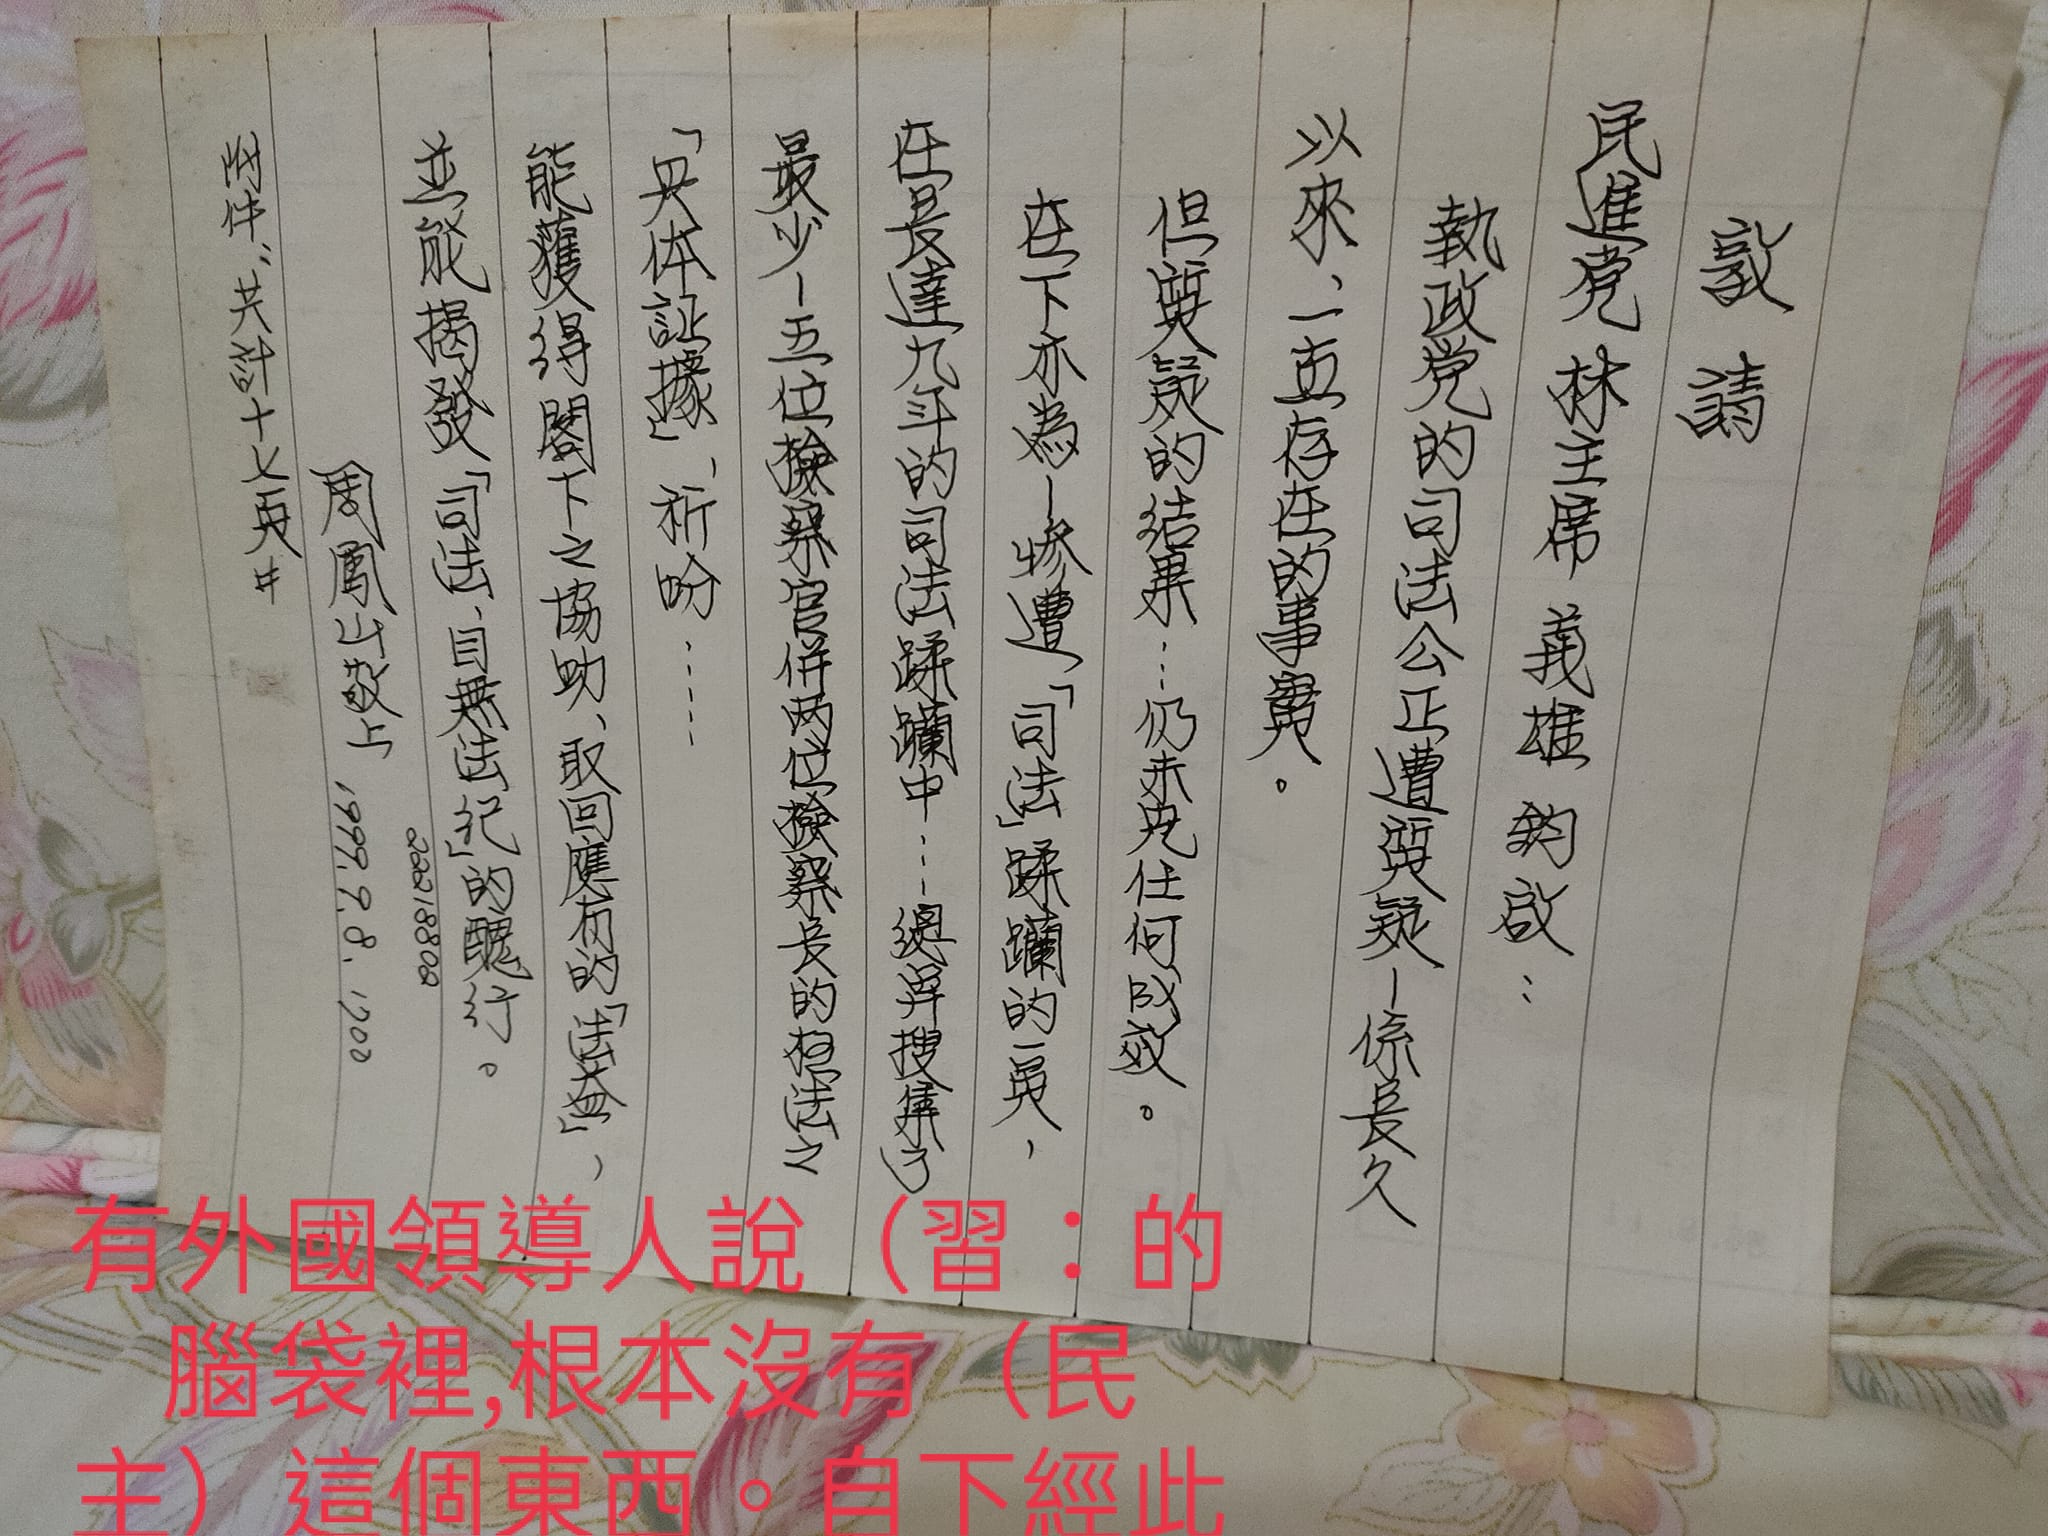 敦請
民進党 林主席 義雄 鈞啟：
執政党的司法公正遭質疑－係長久
以來、一直存在的事實。
但質疑的結果……仍未見任何成效。
在下亦為－慘遭「司法」蹂躪的一員，
在長達九年的司法蹂躪中……總算搜集了
最少－五位檢察官併两位檢察長的枉法之
「具体証據」，祈盼……
能獲得閣下之協助、取回應有的「法益」，
並能揭發「司法、目無法紀」的醜行。
22218802
周鳳山敬上 1999.9.8. 1200
附件：共計十七頁#
有外國領導人說（習：的
腦袋裡,根本沒有（民
主）這個東西。自下經此